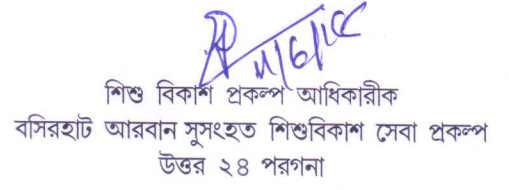 শিশু বিকাশ প্রকল্প আধিকারীক
বসিরহাট আরবান সুসংহত শিশুবিকাশ সেবা প্রকল্প
উত্তর ২৪ পরগনা